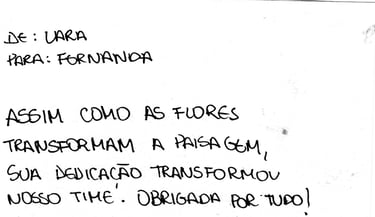 DE: LARA
PARA: FERNANDA
ASSIM COMO AS FLORES
TRANSFORMAM A PAISAGEM,
SUA DEDICAÇÃO TRANSFORMOU
NOSSO TIME. OBRIGADA POR TUDO!